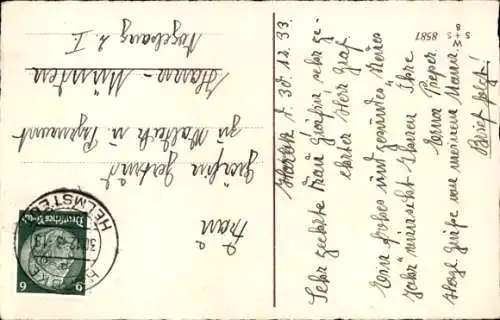 Harbke d. 30.12.33.
Sehr geehrte Frau Gräfin, sehr ge-
ehrter Herr Graf
Ein frohes und gesundes "Neues
Jahr" wünscht Ihnen Ihre
Erna Pieper.
Herzl. Grüße von meinem Mann.
Brief folgt!
Frau
Gräfin Gertrud
zu Waldeck u. Pyrmont
Hann.-Münden
Vogelsang 2. I
HARBKE
HELMSTEDT
30.12.
Deutsches Reich
6 6
W+S
B
S 8581